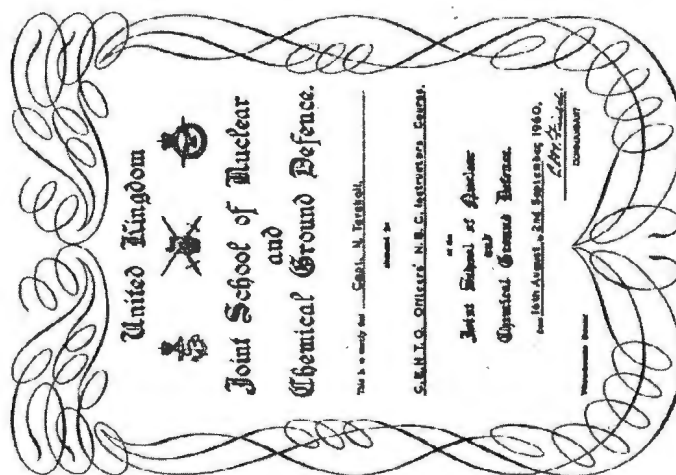 United Kingdom
Joint School of Nuclear
and
Chemical Ground Defence.
This is to certify that Capt. N.
attended the
C.E.N.T.O. Officers' N.B.C. Instructors Course.
at the
Joint School of Nuclear
and
Chemical Ground Defence.
from 16th August, - 2nd September, 1960.
COMMANDANT
Winterbourne Gunner